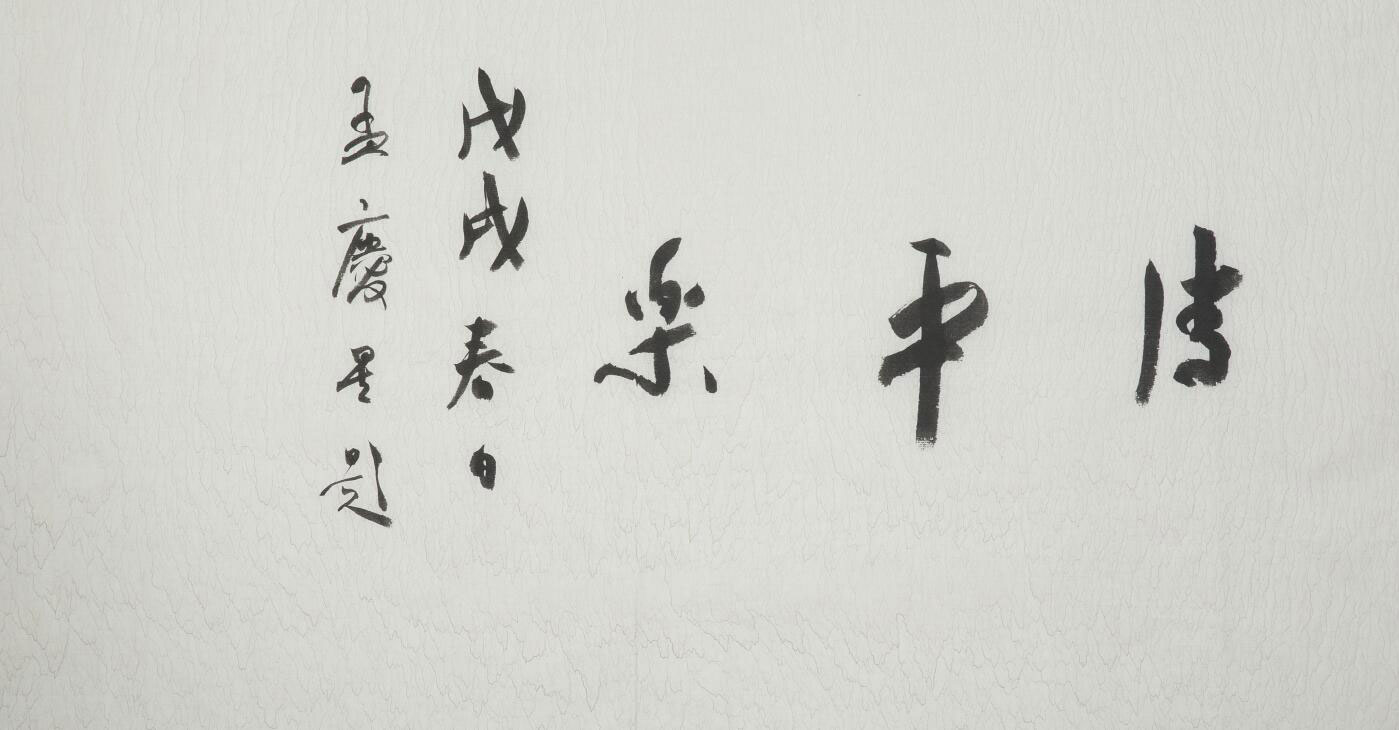 清平樂
戊戌春日
孟慶星題